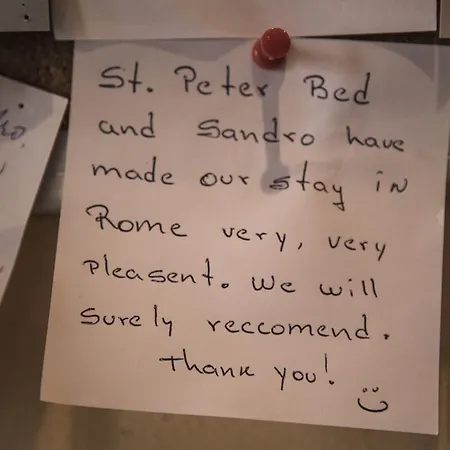 St. Peter Bed
and Sandro have
made our stay in
Rome very, very
pleasent. We will
surely reccomend.
Thank you!